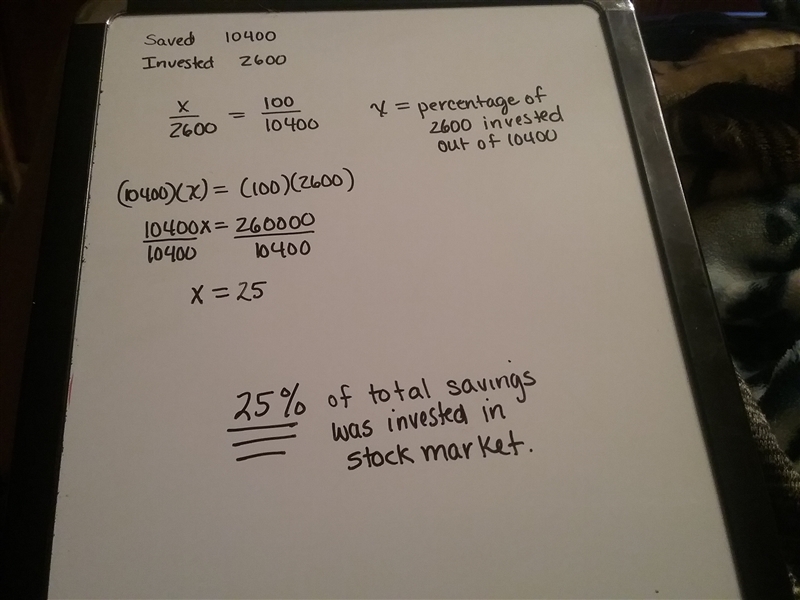 Saved 10400
Invested 2600
x/2600 = 100/10400
x = percentage of
2600 invested
out of 10400
(10400)(x) = (100)(2600)
10400x/10400 = 260000/10400
x = 25
25% of total savings
was invested in
stock market.